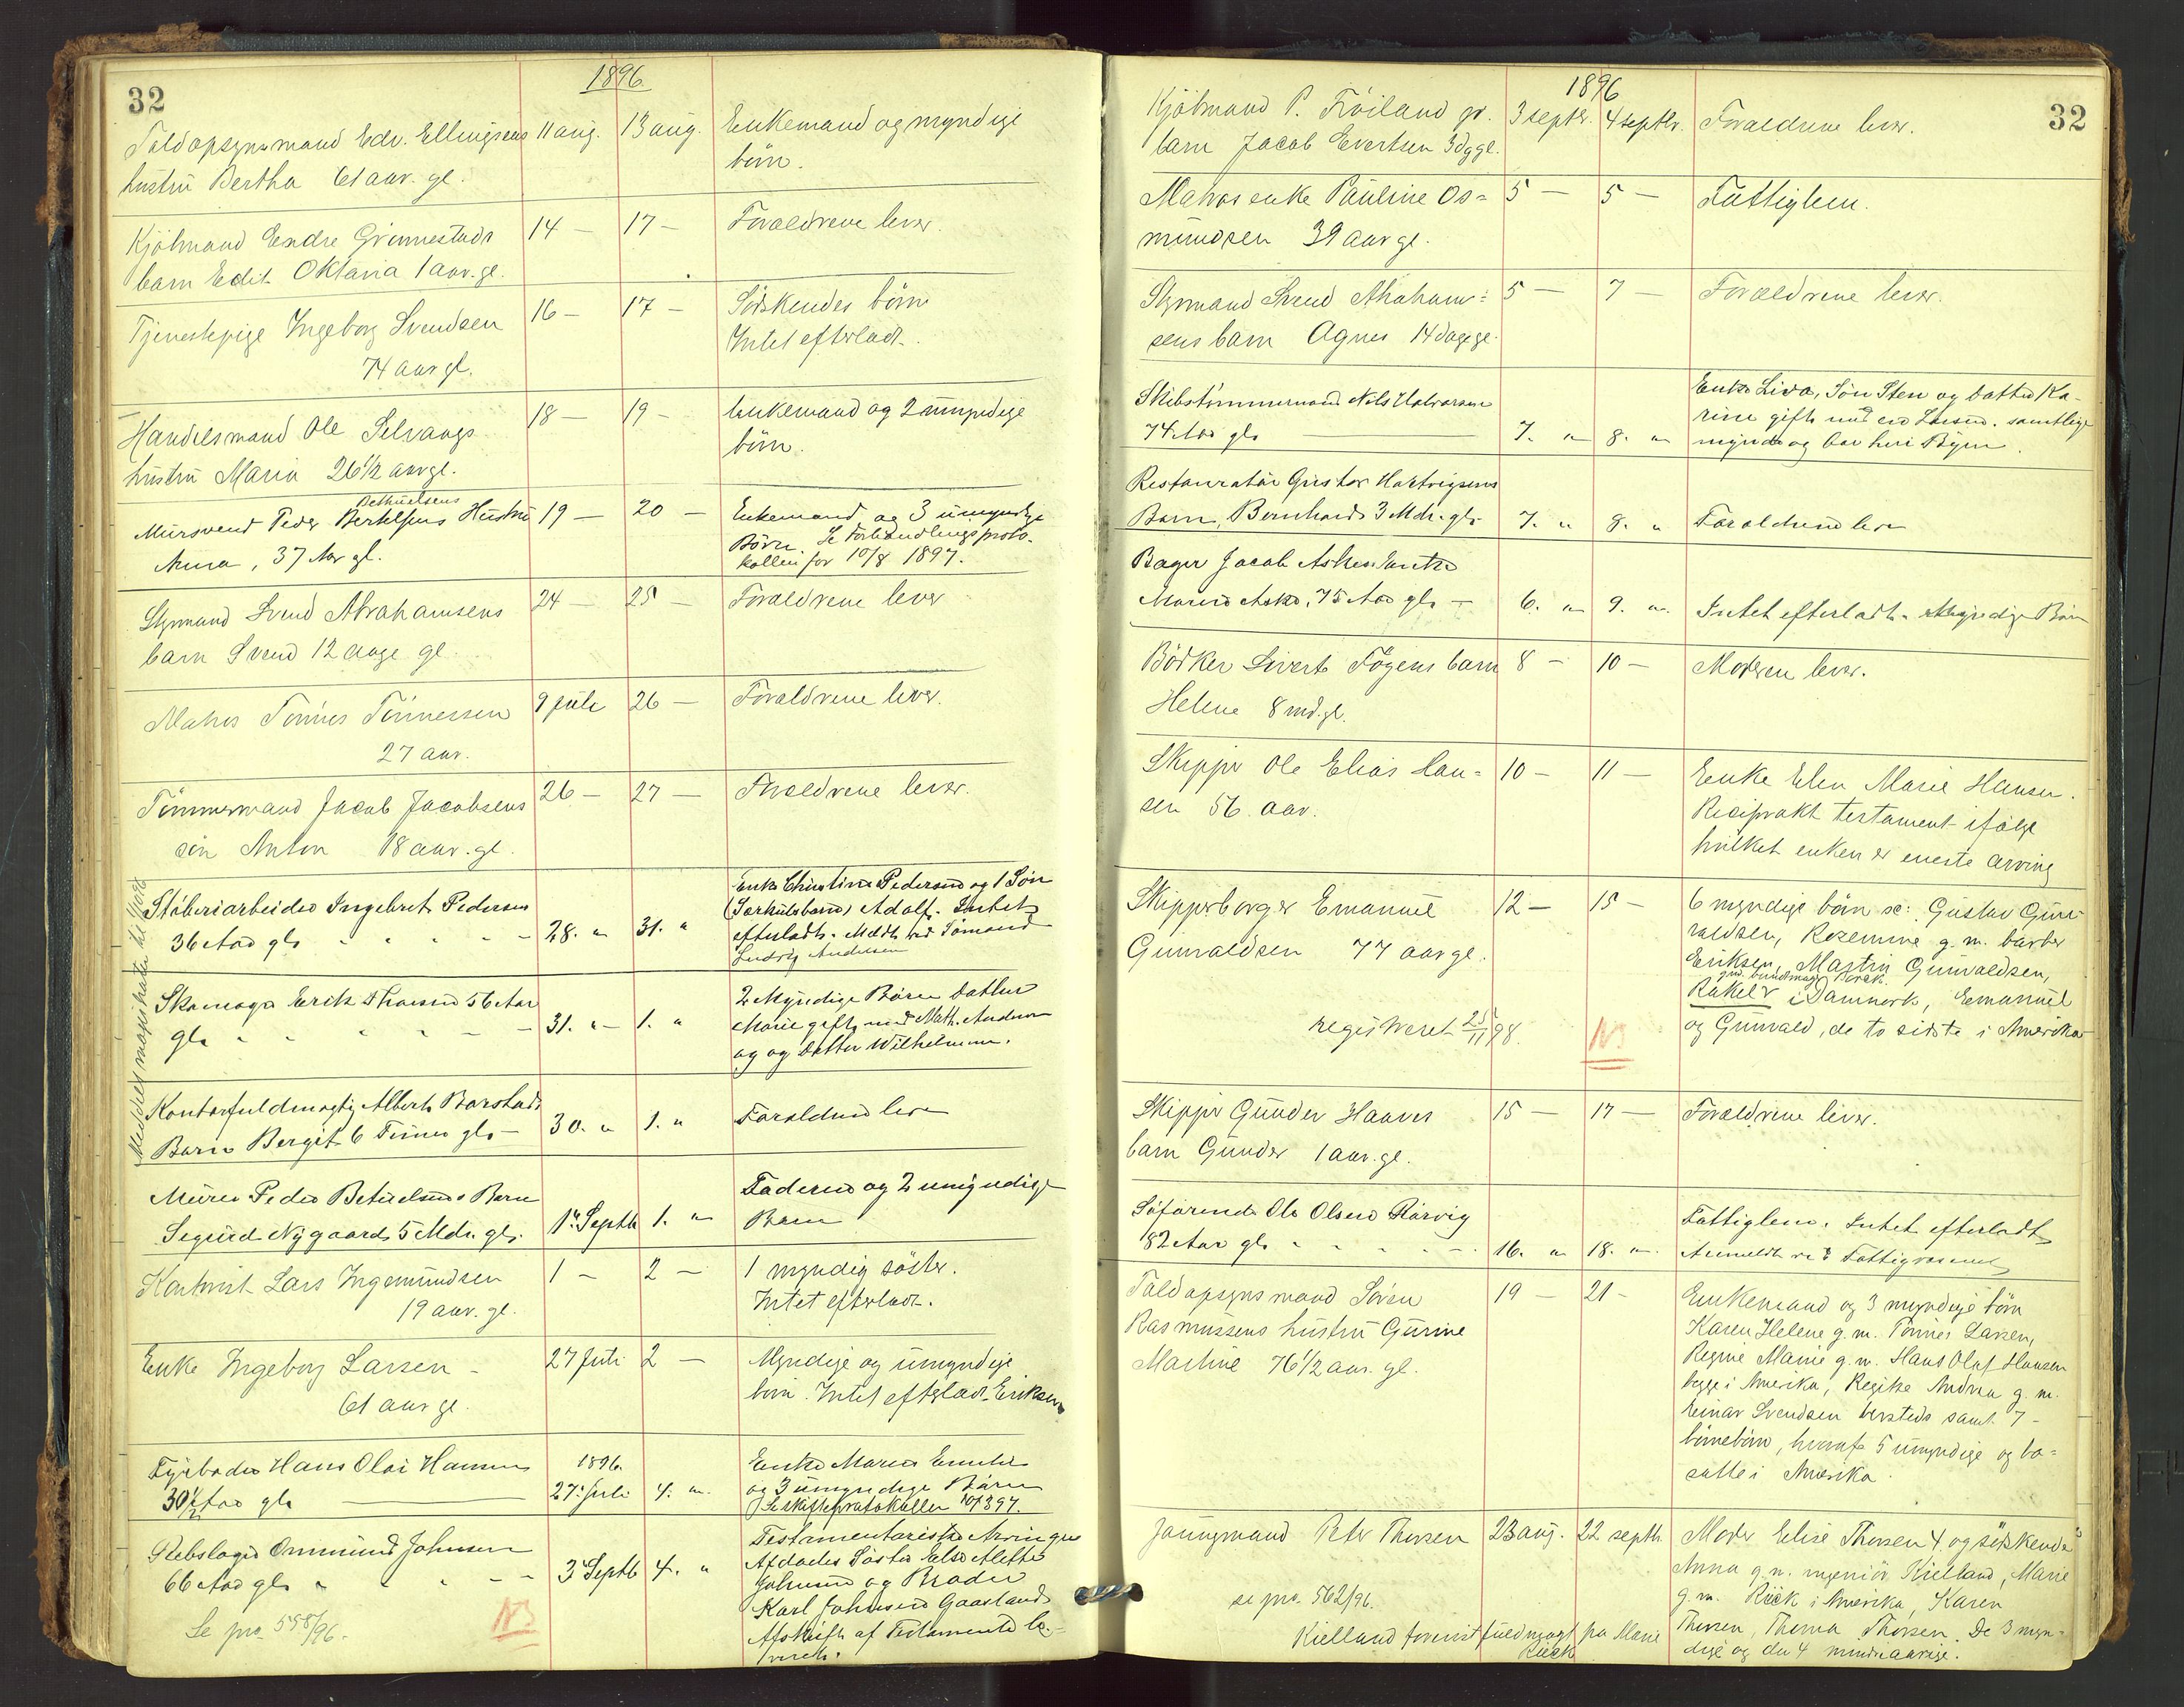 32
1896
Toldopsynsmand Edv. Ellingsens 11 aug. 13 aug. Enkemand og myndige
hustru Bertha 61 aar. gl. børn.
Kjøbmand Endre Grimnestads 14 — 17 — Forældrene lever.
barn Edit Oktavia 1 aar. gl.
Tjenestepige Ingeborg Svendsen 16 — 17 — Søskendes børn
74 aar gl. Intet efterladt.
Handelsmand Ole Selvaags 18 — 19 — Enkemand og 2 umyndige
hustru Maria 26 1/2 aar gl. børn.
Bethuelsens
Mursvend Peder Bertelsens Hustru 19 — 20 — Enkemand og 3 umyndige
Anna, 37 Aar gl. Børn. Se Forhandlingsproto-
kollen for 10/8 1897.
Styrmand Svend Abrahamsens 24 — 25 — Forældrene lever
barn Svend 12 dage gl.
Matros Tønnes Tønnessen 9 juli 26 — Forældrene lever.
27 aar.
Tømmermand Jacob Jacobsens 26 — 27 — Forældrene lever.
søn Anton 18 aar. gl.
Støberiarbeider Ingebret Pedersen Enke Christine Pedersen og 1 Søn
36 Aar gl. 28. " 31. " (Særkulsbarn) Adolf. Intet
efterladt. Meldt ved Sømand
Ludvig Andersen
Skomager Erik 56 Aar 2 Myndige Børn Datter
gl. 31. " 1. " Marie gift med Math. Andersen
og og Datter Wilhelmine.
Kontorfuldmægtig Albert Barstads
Barn Bergit 6 Timer gl. 30. " 1. " Forældrene lever
Murer Peder Betuelsens Barn Faderen og 2 umyndige
Sigurd Nygaard 5 Mdr. gl. 1. Septb 1. " Børn
Kontorist Lars Ingemundsen 1 — 2 — 1 myndig søster.
19 aar. gl. Intet efterladt.
Enke Ingeborg Larsen — 27 Juli 2 — Myndige og umyndige
61 aar gl. børn. Intet efterladt. Eriksen
Fyrbøder Hans Olai Hansen 1896. Enke Maria Emilie
30 1/2 Aar gl. 27. Juli 4. " og 3 umyndige Børn
Se skifteprotokollen
Rebslager Ommund Johnsen Testamentariske Arvinger
66 Aar gl. 3 Septb 4. " Afdødes Søster Else Alette
Johnsen og Broder
Se pro. 558/96. NB Karl Johnsen Gaasland
Afskrift af Testamente le-
veret.
Meddelt magistraten
32
1896
Kjøbmand P. Frøiland gr. 3 septbr. 4 septbr. Forældrene lever.
barn Jacob Evertsen 3 dg gl.
Matros enke Pauline Os= 5 — 5 — Fattiglem.
mundsen 39 aar gl.
Styrmand Svend Abraham= 5 — 7 — Forældrene lever.
sens barn Agnes 14 dage gl.
Enke Lisa, Søn Sten og datter Ka-
Skibstømmermand Nils Halvorsen rine gift med Larsen. samtlige
74 Aar gl. 7. " 8. " myndige og bor her i Byen.
Restauratør Gustav Hartvigsens
Barn, Bernhard 3 Mdr. gl. 7. " 8. " Forældrene lever
Bager Jacob Askes Enke
Maren Aske, 75 Aar gl. 6. " 9. " Intet efterladt. Myndige Børn
Bødker Sivert Føyens barn 8 — 10 — Moderen lever.
Helene 8 md. gl.
Skipper Ole Elias Han= 10 — 11 — Enke Elen Marie Hansen.
sen 56 aar. Reciprokt testament ifølge
hvilket enken er eneste arving
Skipperborger Emanuel 12 — 15 — 6 myndige børn sc: Gustav Gun-
Gunvaldsen 77 aar gl. valdsen, Rosemine g. m. barber
Eriksen, Martin Gunvaldsen,
Rakel i Danmark, Emanuel
registreret 25/11 98. NB og Gunvald, de to sidste i Amerika
Skipper Gunder Haaves 15 — 17 — Forældrene lever.
barn Gunder 1 aar. gl.
Søfarende Ole Olsen Rørvig Fattiglem. Intet efterladt
82 Aar gl. 16. " 18. " Anmeldt ved Fattigvæsenet
Toldopsynsmand Søren 19 — 21 — Enkemand og 3 myndige børn
Rasmussens hustru Gurine Karen Helene g. m. Tønnes Larsen,
Martine 76 1/2 aar. gl. Regine Marie g. m. Hans Olaf Hansen
begge i Amerika, Regitze Andrea g. m.
Einar Svendsen hersteds samt 7
børnebørn, hvoraf 5 umyndige og bo=
satte i Amerika.
Jungmand Peter Thorsen 23 aug. 22 septb. Moder Elise Thorsen og 4 søskende
Anna g. m. ingeniør Kielland, Marie
se pro. 562/96. g. m. Rück i Amerika, Karen
Kielland forevist fuldmagt fra Marie Rück Thorsen, Thoma Thorsen. De 3 myn-
dige og den 4 mindreaarige.